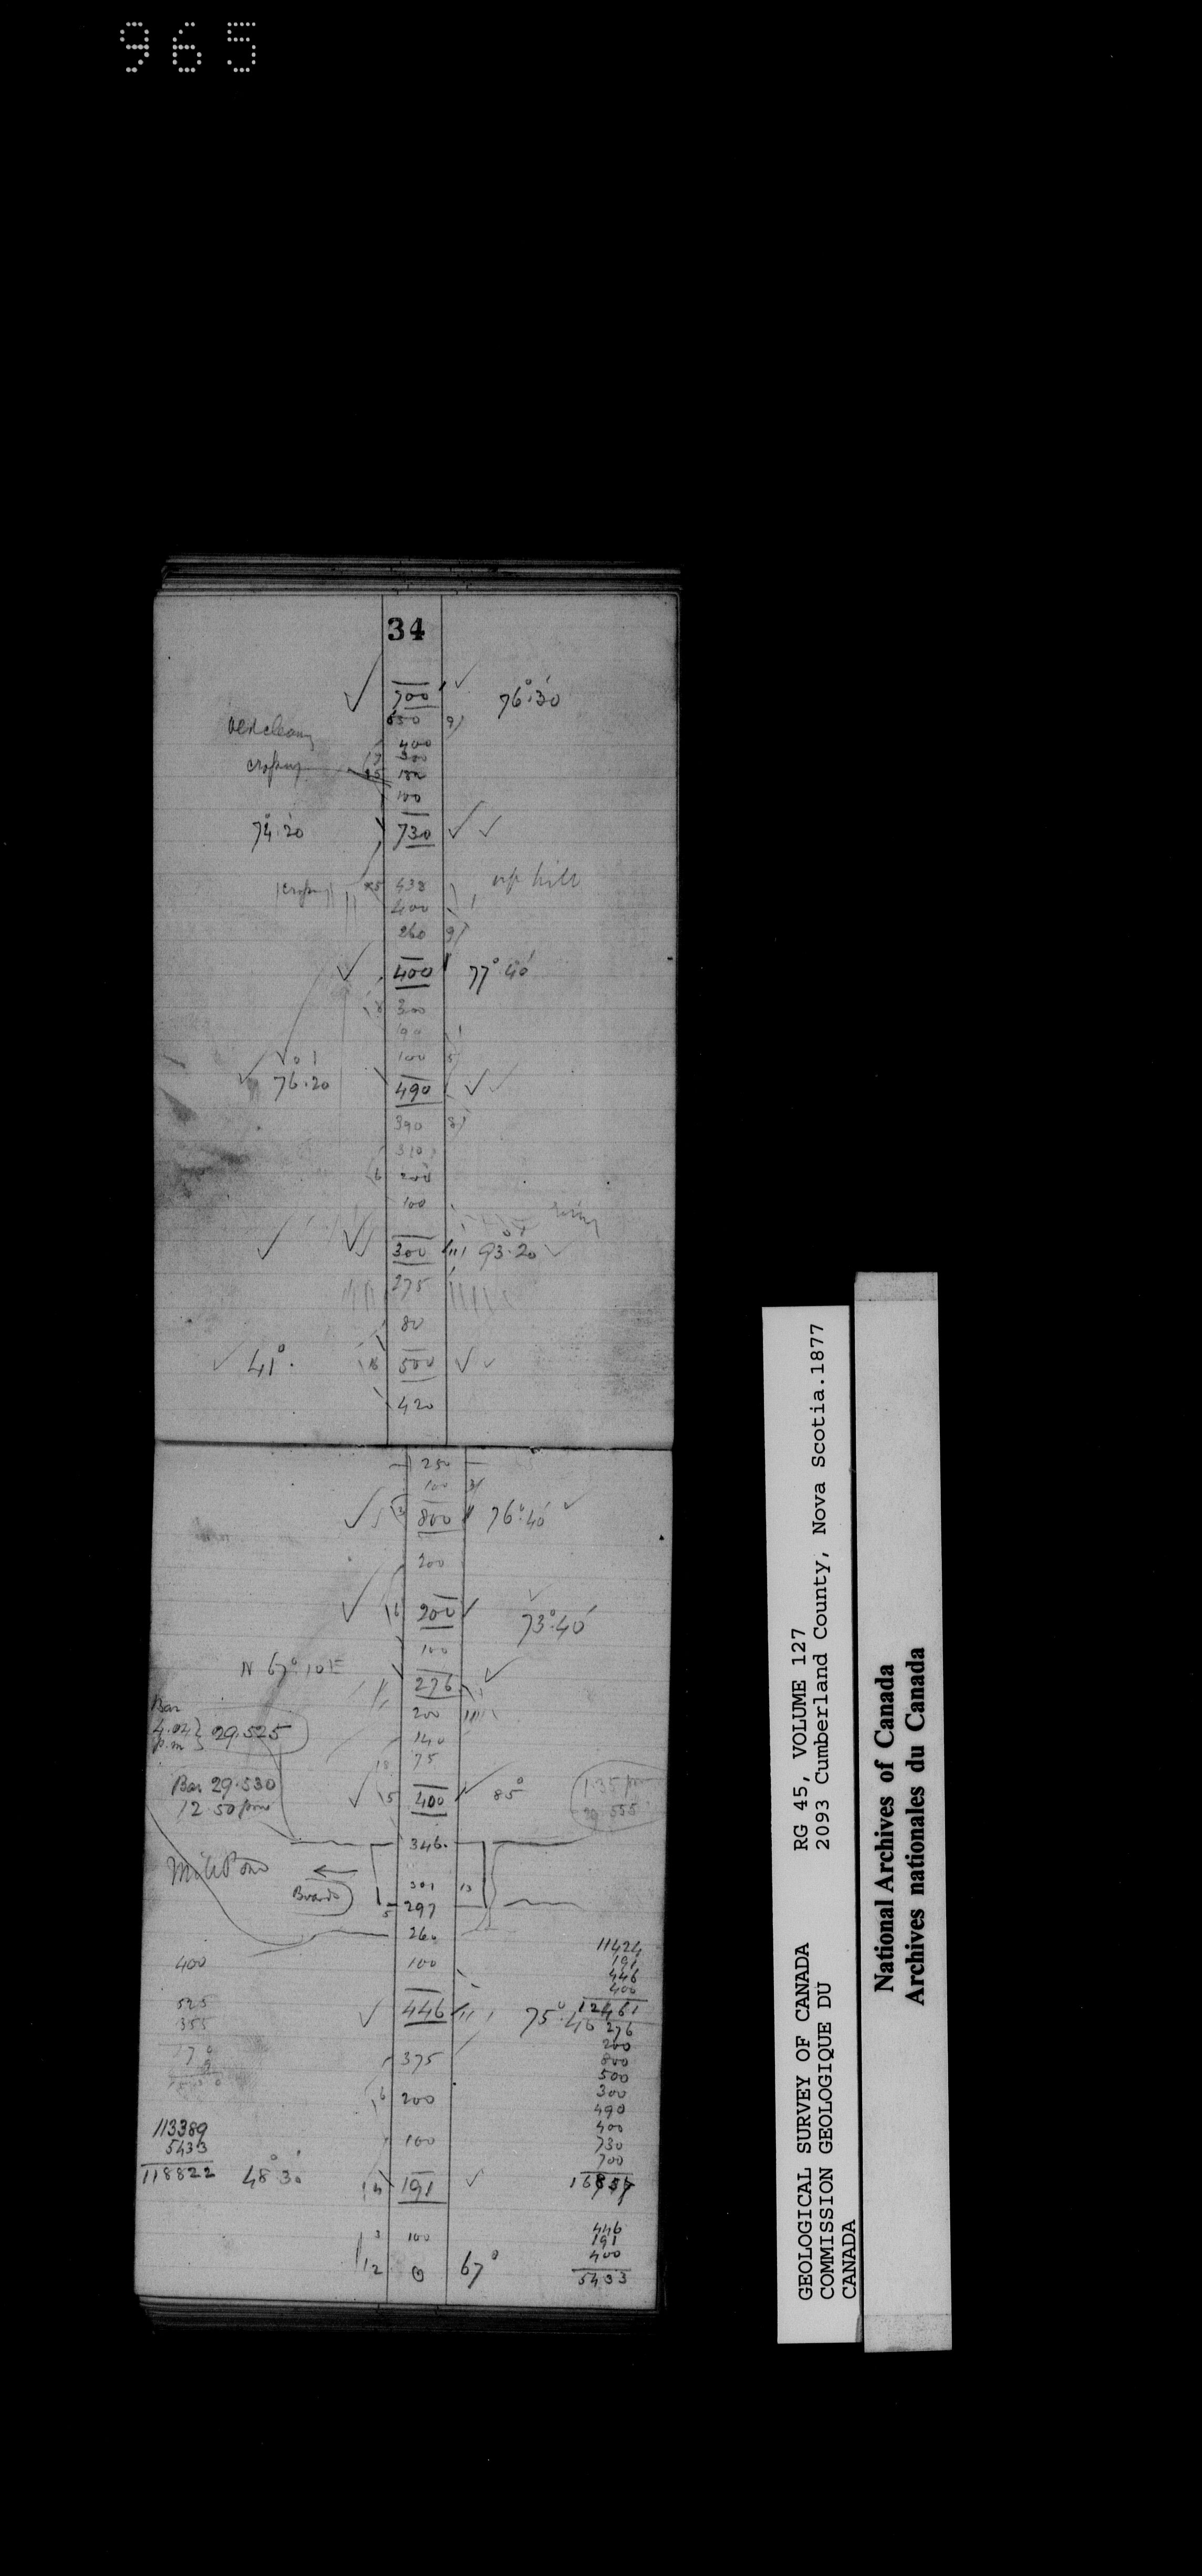 965
34
700 76°30'
550 9
400
300
100
74°20' 730
up hill
438
400
260 9
400 77° 40'
8 300
190
100 5
76°20' 490
390 8
310
6 200
100
300 93°20'
275
80
41° 16 500
420
250
100 3
800 76°40'
200
16 200 73°40'
100
N 67°10 E 276
200
Bar
4.04 p.m } 29.525 140
75
Bar 29.530
12.50 pm
5 400 85° 1.35 pm
29 555
346
Mill Pond
301 13
Boards
5 297
260
11424
400 100 191
446
400
12461
525 446 75°.40 276
355
200
375 800
500
6 200 300
490
400
113389 100 730
5433 700
118822 48°30 14 191
3 100 446
191
12 0 67° 400
5433
GEOLOGICAL SURVEY OF CANADA RG 45, VOLUME 127
COMMISSION GEOLOGIQUE DU 2093 Cumberland County, Nova Scotia.1877
CANADA
National Archives of Canada
Archives nationales du Canada